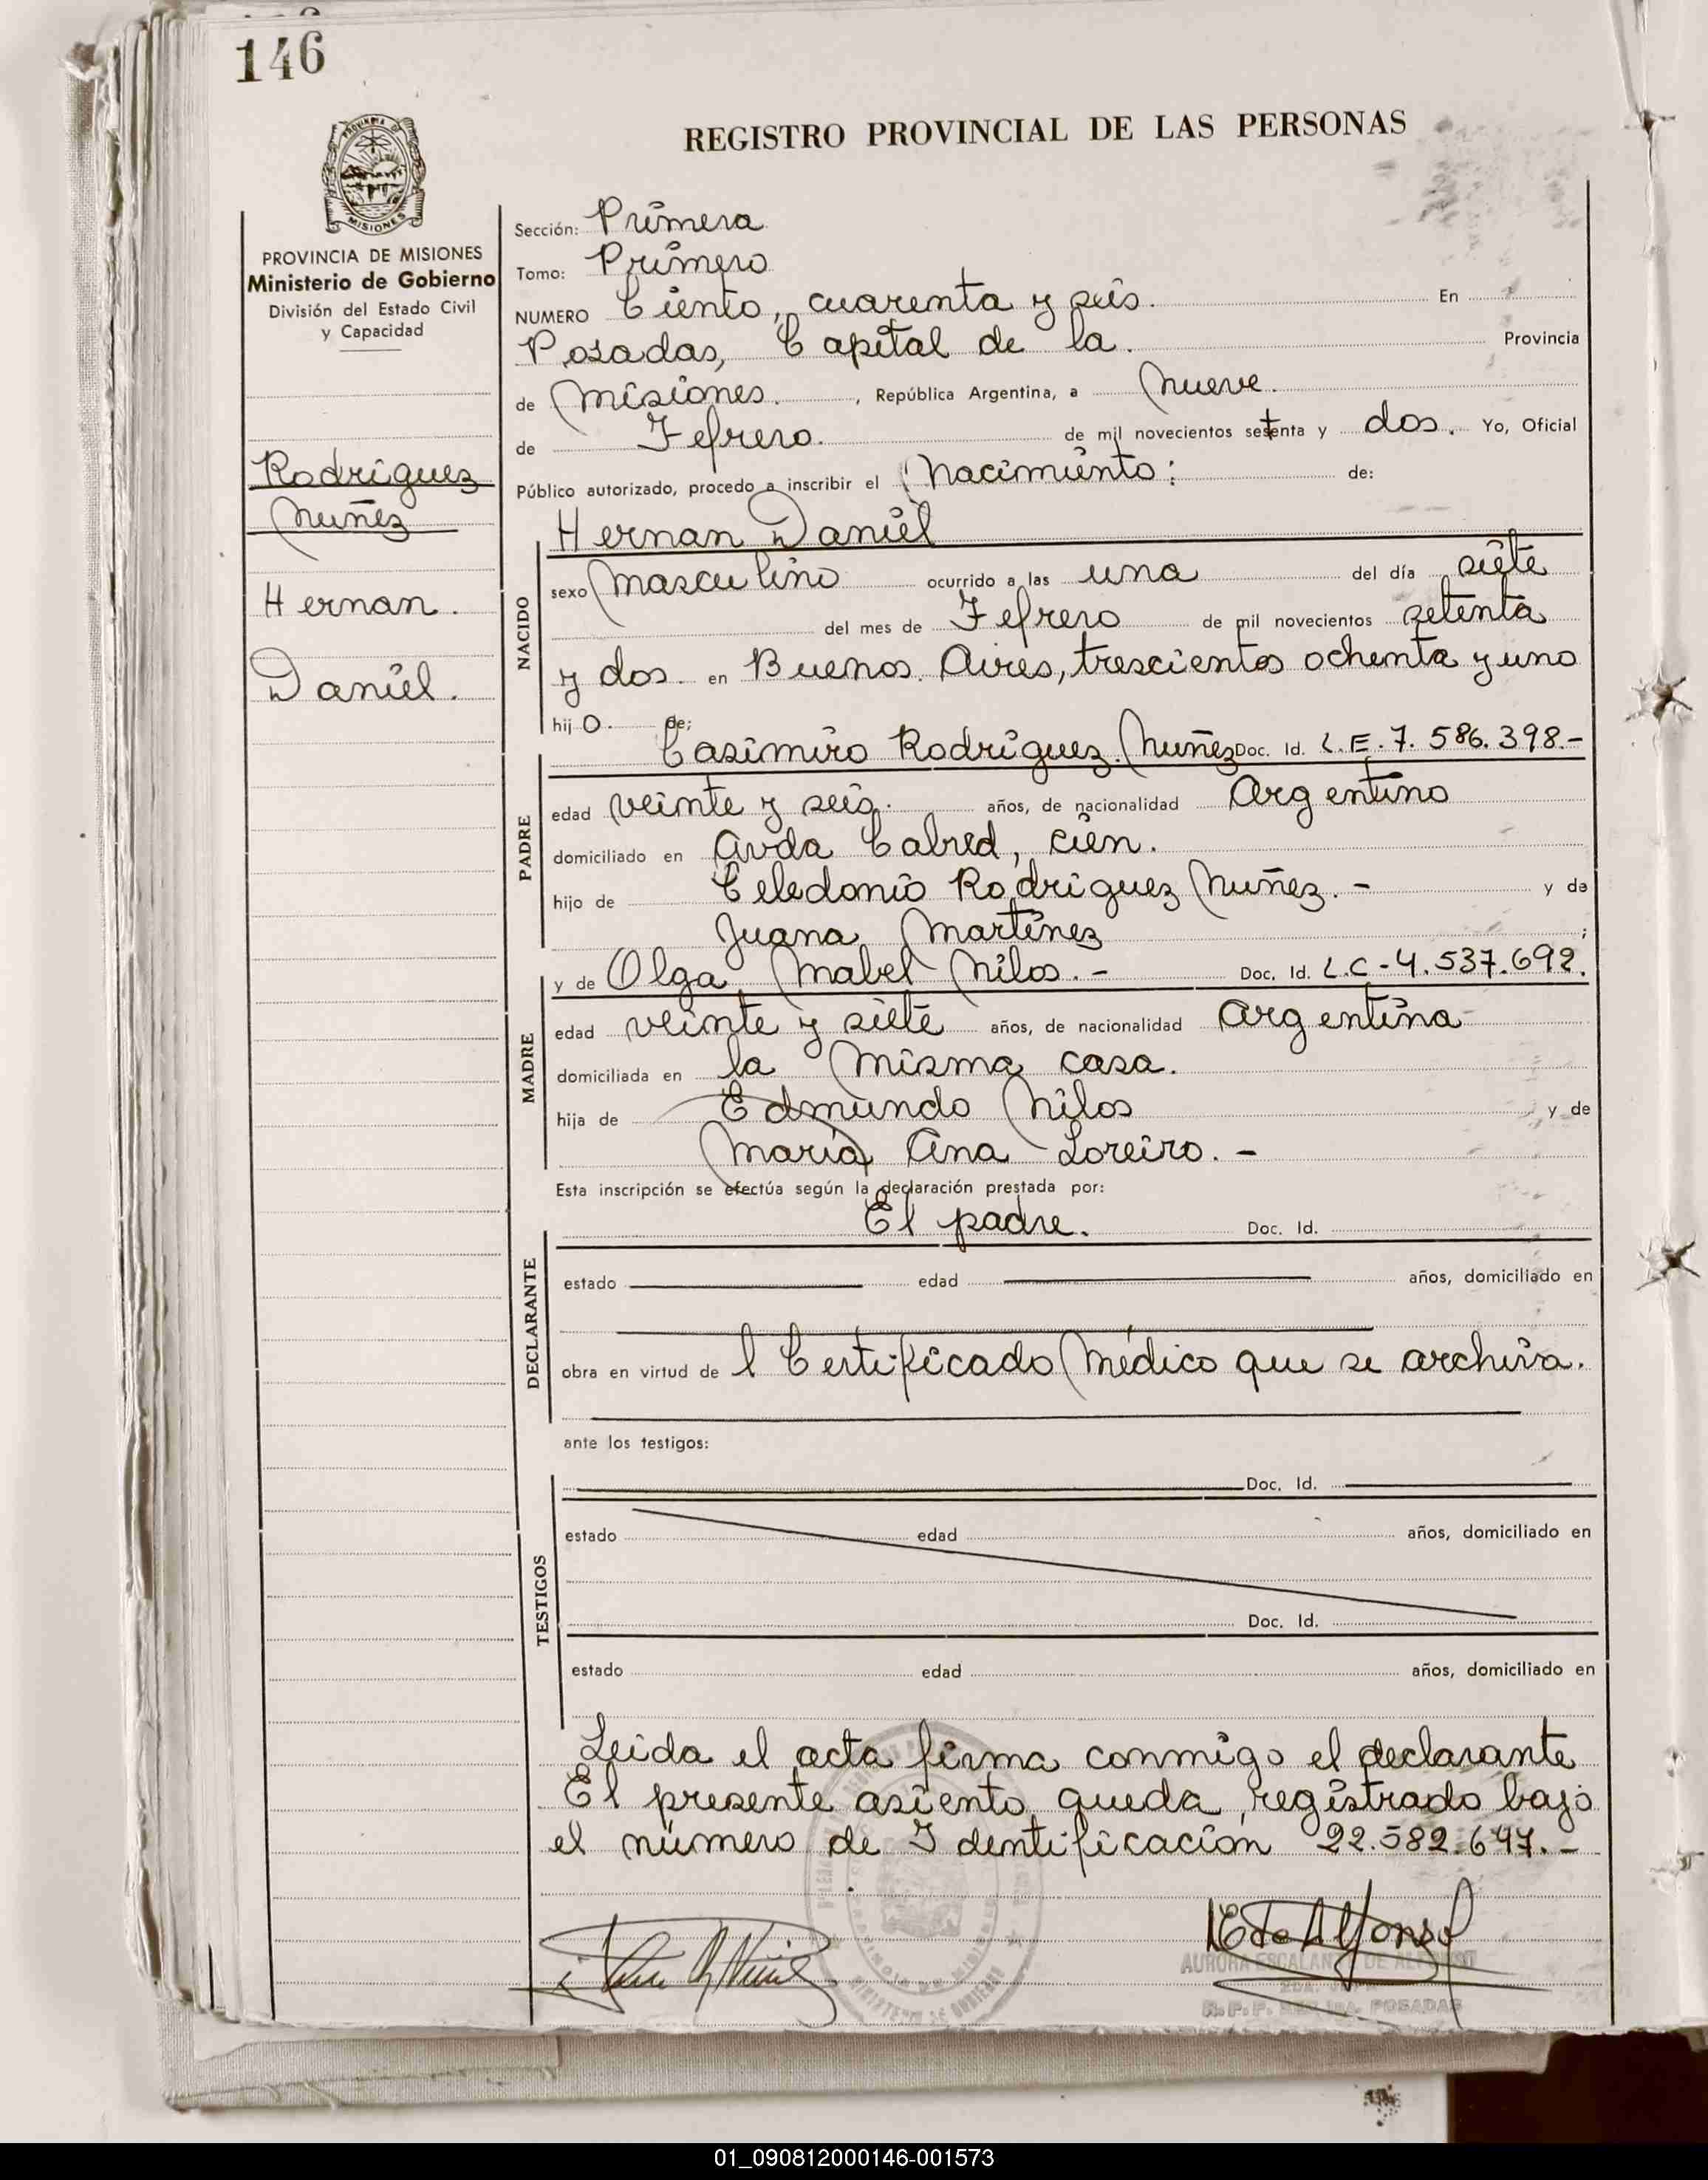 146
REGISTRO PROVINCIAL DE LAS PERSONAS
PROVINCIA DE
MISIONES
PROVINCIA DE MISIONES
Ministerio de Gobierno
División del Estado Civil
y Capacidad
Rodriguez
Nuñez
Hernan.
Daniel.
Sección: Primera
Tomo: Primero
NUMERO Ciento, cuarenta y seis. En
Posadas, Capital de la. Provincia
de Misiones. , República Argentina, a Nueve.
de Febrero. de mil novecientos setenta y dos. Yo, Oficial
Público autorizado, procedo a inscribir el Nacimiento: de:
Hernan Daniel
NACIDO
sexo Masculino ocurrido a las una del día siete
del mes de Febrero de mil novecientos setenta
y dos. en Buenos Aires, trescientos ochenta y uno
hij o. de:
Casimiro Rodriguez Nuñez Doc. Id. L.E. 7.586.398.-
PADRE
edad veinte y seis. años, de nacionalidad Argentino
domiciliado en Avda Cabred, cien.
hijo de Celedonio Rodriguez Nuñez. - y de
Juana Martinez ;
y de Olga Mabel Nilos. - Doc. Id. L.C-4.537.692.
MADRE
edad veinte y siete años, de nacionalidad Argentina
domiciliada en la misma casa.
hija de Edmundo Nilos y de
Maria Ana Loreiro. -
Esta inscripción se efectúa según la declaración prestada por:
El padre. Doc. Id.
DECLARANTE
estado edad años, domiciliado en
obra en virtud de l Certificado Médico que se archiva.
ante los testigos:
Doc. Id.
TESTIGOS
estado edad años, domiciliado en
Doc. Id.
estado edad años, domiciliado en
Leida el acta firma conmigo el declarante
El presente asiento queda registrado bajo
el número de Identificación 22.582.647.-
E de Alfonso
AURORA ESCALANTE DE ALFONSO
POSADAS
01_090812000146-001573